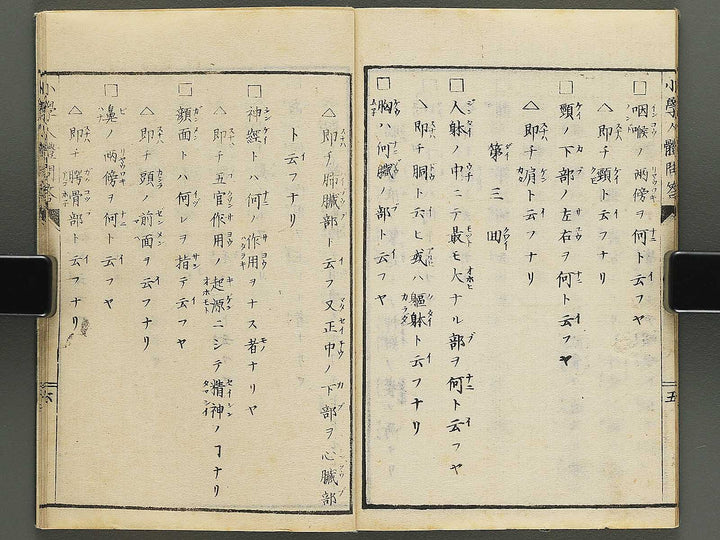 □咽喉ノ兩傍ヲ何ト云フヤ
△即チ頸ト云フナリ
□頸ノ下部ノ左右ヲ何ト云フヤ
△即チ肩ト云フナリ
第三回
□人躰ノ中ニテ最モ大ナル部ヲ何ト云フヤ
△即チ胴ト云ヒ或ハ軀躰ト云フナリ
□胸ハ何臓ノ部ト云フヤ
五
△即チ肺臓部ト云フ又正中ノ下部ヲ心臓部
ト云フナリ
□神經トハ何ノ作用ヲナス者ナリヤ
△即チ五官作用ノ起源ニシテ精神ノヿナリ
□顔面トハ何レヲ指テ云フヤ
△即チ頭ノ前面ヲ云フナリ
□鼻ノ兩傍ヲ何ト云フヤ
△即チ腭骨部ト云フナリ
小學人體問答
六